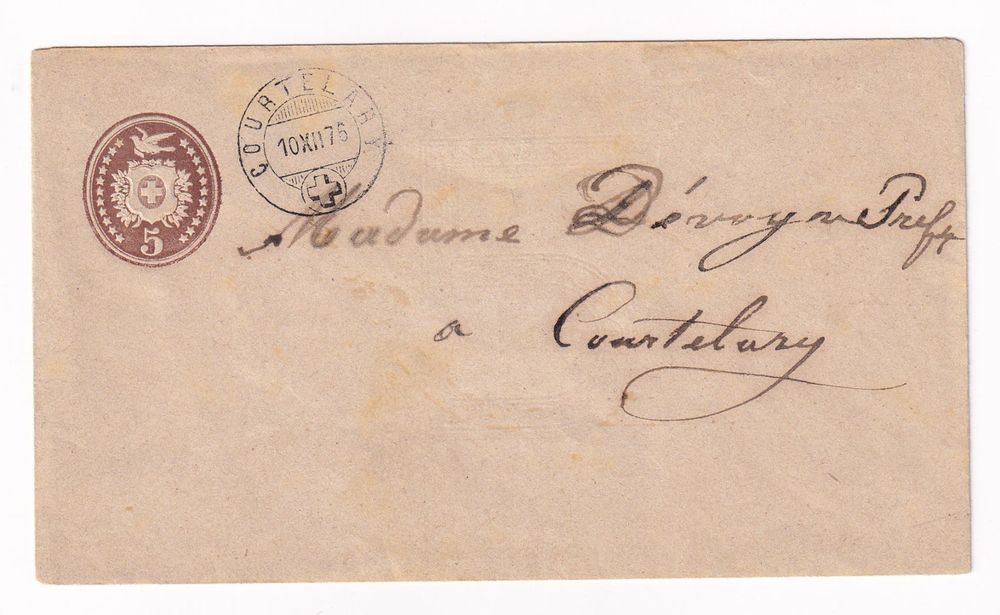 COURTELARY
10XII76
5
Madame Dévoyn Pref
a Courtelary